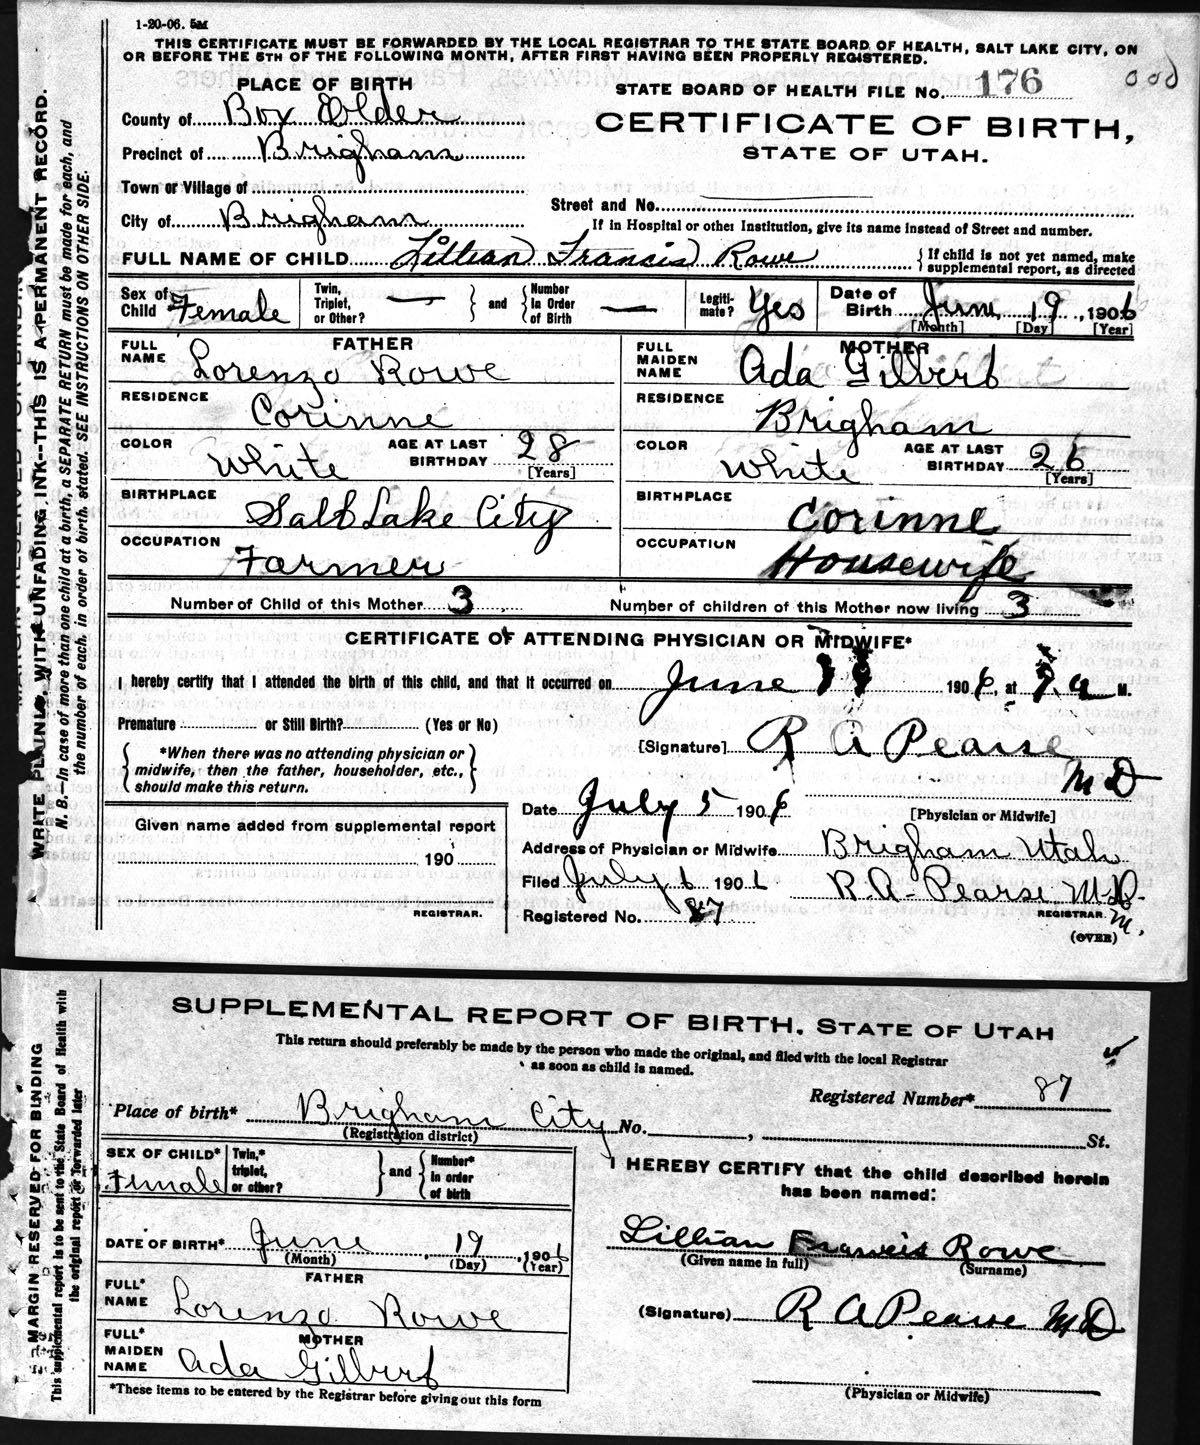 1-20-06. 5M
THIS CERTIFICATE MUST BE FORWARDED BY THE LOCAL REGISTRAR TO THE STATE BOARD OF HEALTH, SALT LAKE CITY, ON
OR BEFORE THE 5TH OF THE FOLLOWING MONTH, AFTER FIRST HAVING BEEN PROPERLY REGISTERED.
PLACE OF BIRTH
STATE BOARD OF HEALTH FILE No. 176
County of Box Elder
CERTIFICATE OF BIRTH,
Precinct of Brigham
STATE OF UTAH.
Town or Village of
Street and No.
City of Brigham
If in Hospital or other Institution, give its name instead of Street and number.
FULL NAME OF CHILD Lillian Francis Rowe { If child is not yet named, make supplemental report, as directed
Sex of Child Female Twin, Triplet, or Other? — } and { Number in Order of Birth — Legitimate? Yes Date of Birth June 19, 1906
[Month] [Day] [Year]
FATHER
FULL NAME Lorenzo Rowe
RESIDENCE Corinne
COLOR White AGE AT LAST BIRTHDAY 28
[Years]
BIRTHPLACE Salt Lake City
OCCUPATION Farmer
MOTHER
FULL MAIDEN NAME Ada Gilbert
RESIDENCE Brigham
COLOR White AGE AT LAST BIRTHDAY 26
[Years]
BIRTHPLACE Corinne
OCCUPATION Housewife
Number of Child of this Mother 3 Number of children of this Mother now living 3
CERTIFICATE OF ATTENDING PHYSICIAN OR MIDWIFE*
I hereby certify that I attended the birth of this child, and that it occurred on June 19 1906, at M.
Premature or Still Birth? (Yes or No)
[Signature] R A Pearse
M D
*When there was no attending physician or
midwife, then the father, householder, etc.,
should make this return.
[Physician or Midwife]
Date July 5 1906
Given name added from supplemental report
190
REGISTRAR.
Address of Physician or Midwife Brigham Utah
Filed July 6 1906 R.A. Pearse M.D.
REGISTRAR.
Registered No. 87
(OVER)
WRITE PLAINLY, WITH UNFADING INK--THIS IS A PERMANENT RECORD.
N. B.—In case of more than one child at a birth, a SEPARATE RETURN must be made for each, and
the number of each, in order of birth, stated. SEE INSTRUCTIONS ON OTHER SIDE.
SUPPLEMENTAL REPORT OF BIRTH, STATE OF UTAH
This return should preferably be made by the person who made the original, and filed with the local Registrar
as soon as child is named.
Registered Number* 87
Place of birth* Brigham City No. , St.
(Registration district)
SEX OF CHILD* Female Twin,* triplet, or other? } and { Number* in order of birth
DATE OF BIRTH* June, 19, 1906
(Month) (Day) (Year)
FATHER
FULL* NAME Lorenzo Rowe
MOTHER
FULL* MAIDEN NAME Ada Gilbert
*These items to be entered by the Registrar before giving out this form
I HEREBY CERTIFY that the child described herein
has been named:
Lillian Francis Rowe
(Given name in full) (Surname)
(Signature) R A Pearse M D
(Physician or Midwife)
MARGIN RESERVED FOR BINDING
This supplemental report is to be sent to the State Board of Health with
the original report or forwarded later